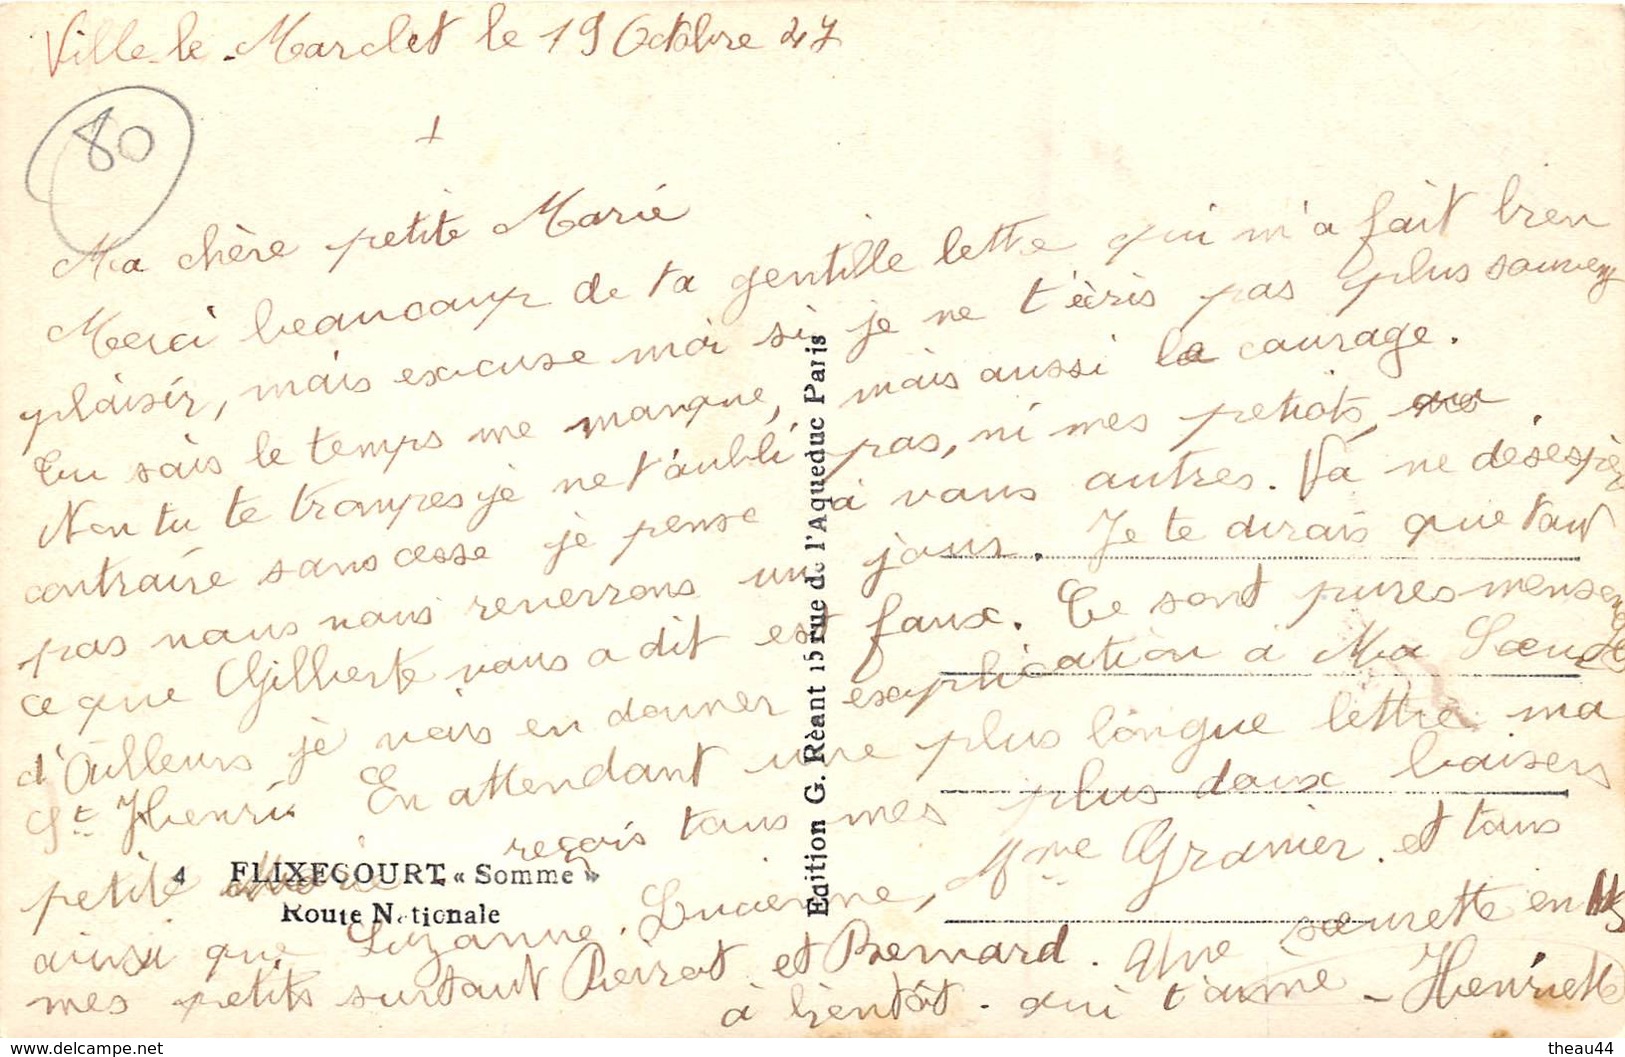 Ville-le-Marclet le 19 Octobre 47
80
+
Ma chère petite Marie
Merci beaucoup de ta gentille lettre qui m'a fait bien
plaisir, mais excuse moi si je ne t'écris pas plus souvent
Tu sais le temps me manque, mais aussi le courage.
Non tu te trompes je ne t'oubli pas, ni mes petiots,
contraire sans cesse je pense à vous autres. Va ne désespère
pas nous nous reverrons un jour. Je te dirais que tout
ce que Gilberte vous a dit est faux. Ce sont pures mensonges
d'Ailleurs je vais en donner explication à Ma Soeur
St Henri. En attendant une plus longue lettre ma
petite Marie reçois tous mes plus doux baisers
ainsi que Suzanne, Lucienne, Mme Granier. et tous
mes petits surtout Pierrot et Bernard. Une soeurette en
à bientôt. qui t'aime - Henriette
4 FLIXECOURT « Somme »
Route Nationale
Edition G. Rèant 15 rue de l'Aqueduc Paris
https://www.delcampe.net
theau44